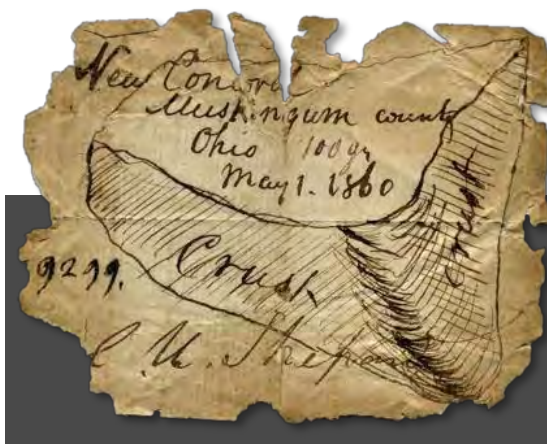 New Concord
Muskingum county
Ohio 100 gr
May 1. 1860
Crust
Crust
9299.
C. U. Shepard